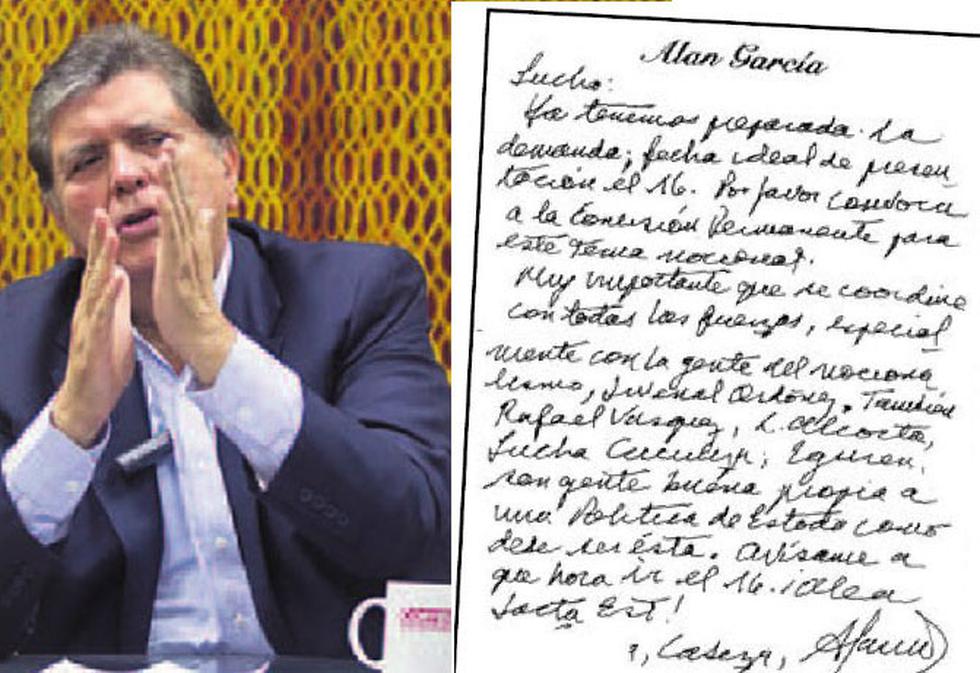 Alan García
Lucho:
Ya tenemos preparada la
demanda; fecha ideal de presen
tación el 16. Por favor convoca
a la Comisión Permanente para
este tema nacional.
Muy importante que se coordine
con todas las fuerzas, especial
mente con la gente del naciona
lismo, Juvenal Ordóñez. También
Rafael Vásquez, L. Alcorta,
Lucha Cuculiza; Eguren.
son gente buena propia a
una Política de Estado como
debe ser ésta. Avísame a
que hora ir el 16. ¡Alea
Jacta Est!
Alan